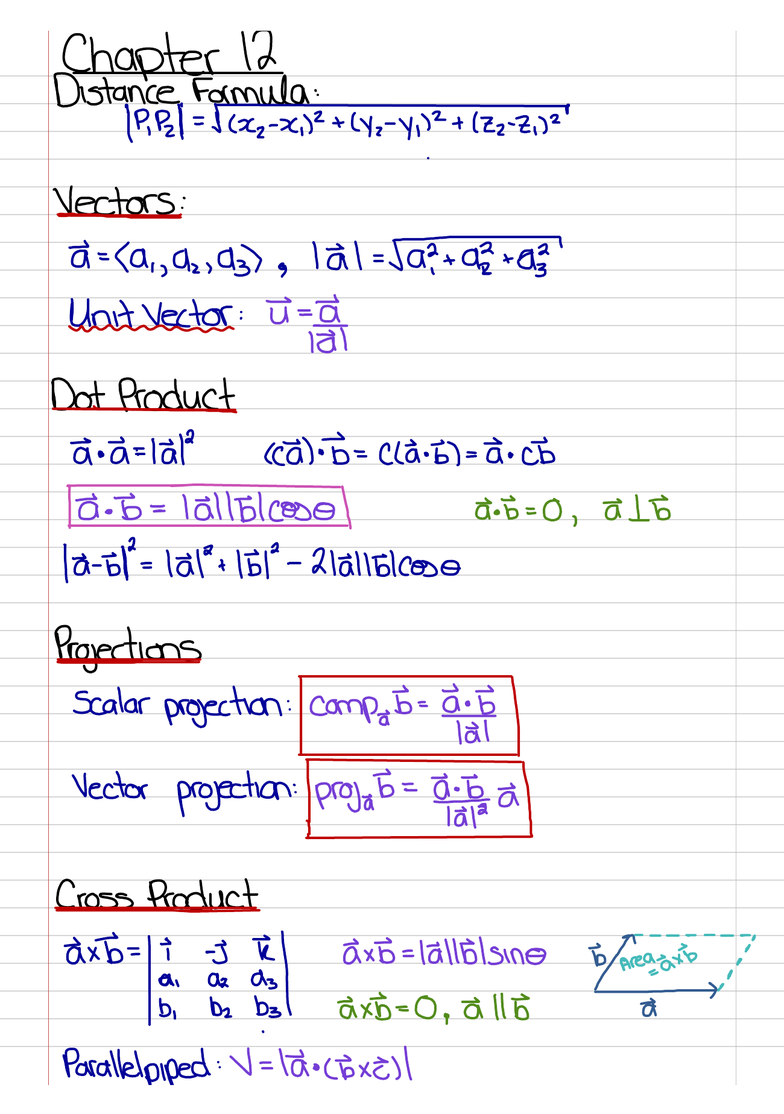 Chapter 12
Distance Formula:
|P₁P₂| = √(x₂-x₁)² + (y₂-y₁)² + (z₂-z₁)²
Vectors:
a⃗ = ⟨a₁, a₂, a₃⟩ , |a⃗| = √a₁² + a₂² + a₃²
Unit Vector: u⃗ = a⃗/|a⃗|
Dot Product
a⃗·a⃗ = |a⃗|² (ca⃗)·b⃗ = c(a⃗·b⃗) = a⃗·cb⃗
a⃗·b⃗ = |a⃗||b⃗|cosθ a⃗·b⃗ = 0, a⃗⊥b⃗
|a⃗-b⃗|² = |a⃗|² + |b⃗|² - 2|a⃗||b⃗|cosθ
Projections
Scalar projection: comp_a⃗ b⃗ = a⃗·b⃗/|a⃗|
Vector projection: proj_a⃗ b⃗ = a⃗·b⃗/|a⃗|² a⃗
Cross Product
a⃗×b⃗ = | i⃗ -j⃗ k⃗ | a⃗×b⃗ = |a⃗||b⃗|sinθ
a₁ a₂ a₃
b₁ b₂ b₃ a⃗×b⃗ = 0, a⃗ || b⃗
b⃗ Area = a⃗×b⃗
a⃗
Parallelpiped: V = |a⃗·(b⃗×c⃗)|